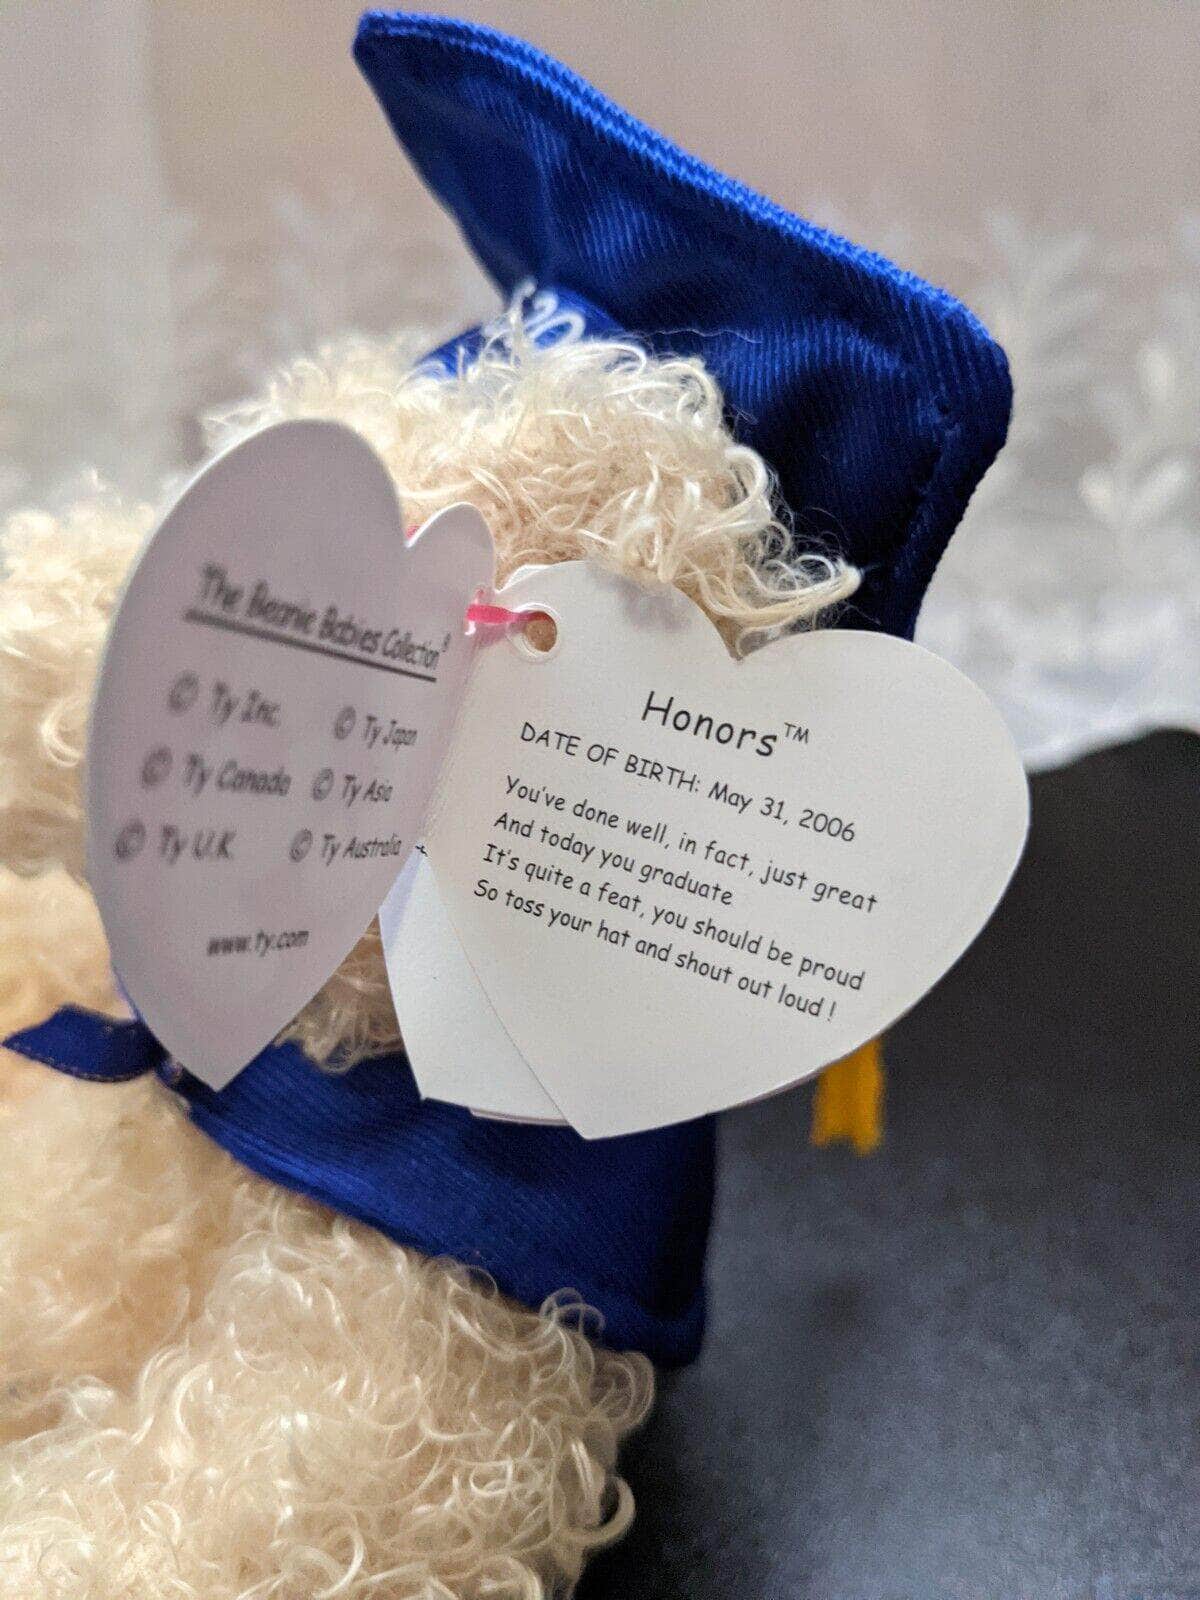 20
The Beanie Babies Collection®
© Ty Inc. © Ty Japan
© Ty Canada © Ty Asia
© Ty U.K. © Ty Australia
www.ty.com
Honors™
DATE OF BIRTH: May 31, 2006
You've done well, in fact, just great
And today you graduate
It's quite a feat, you should be proud
So toss your hat and shout out loud !